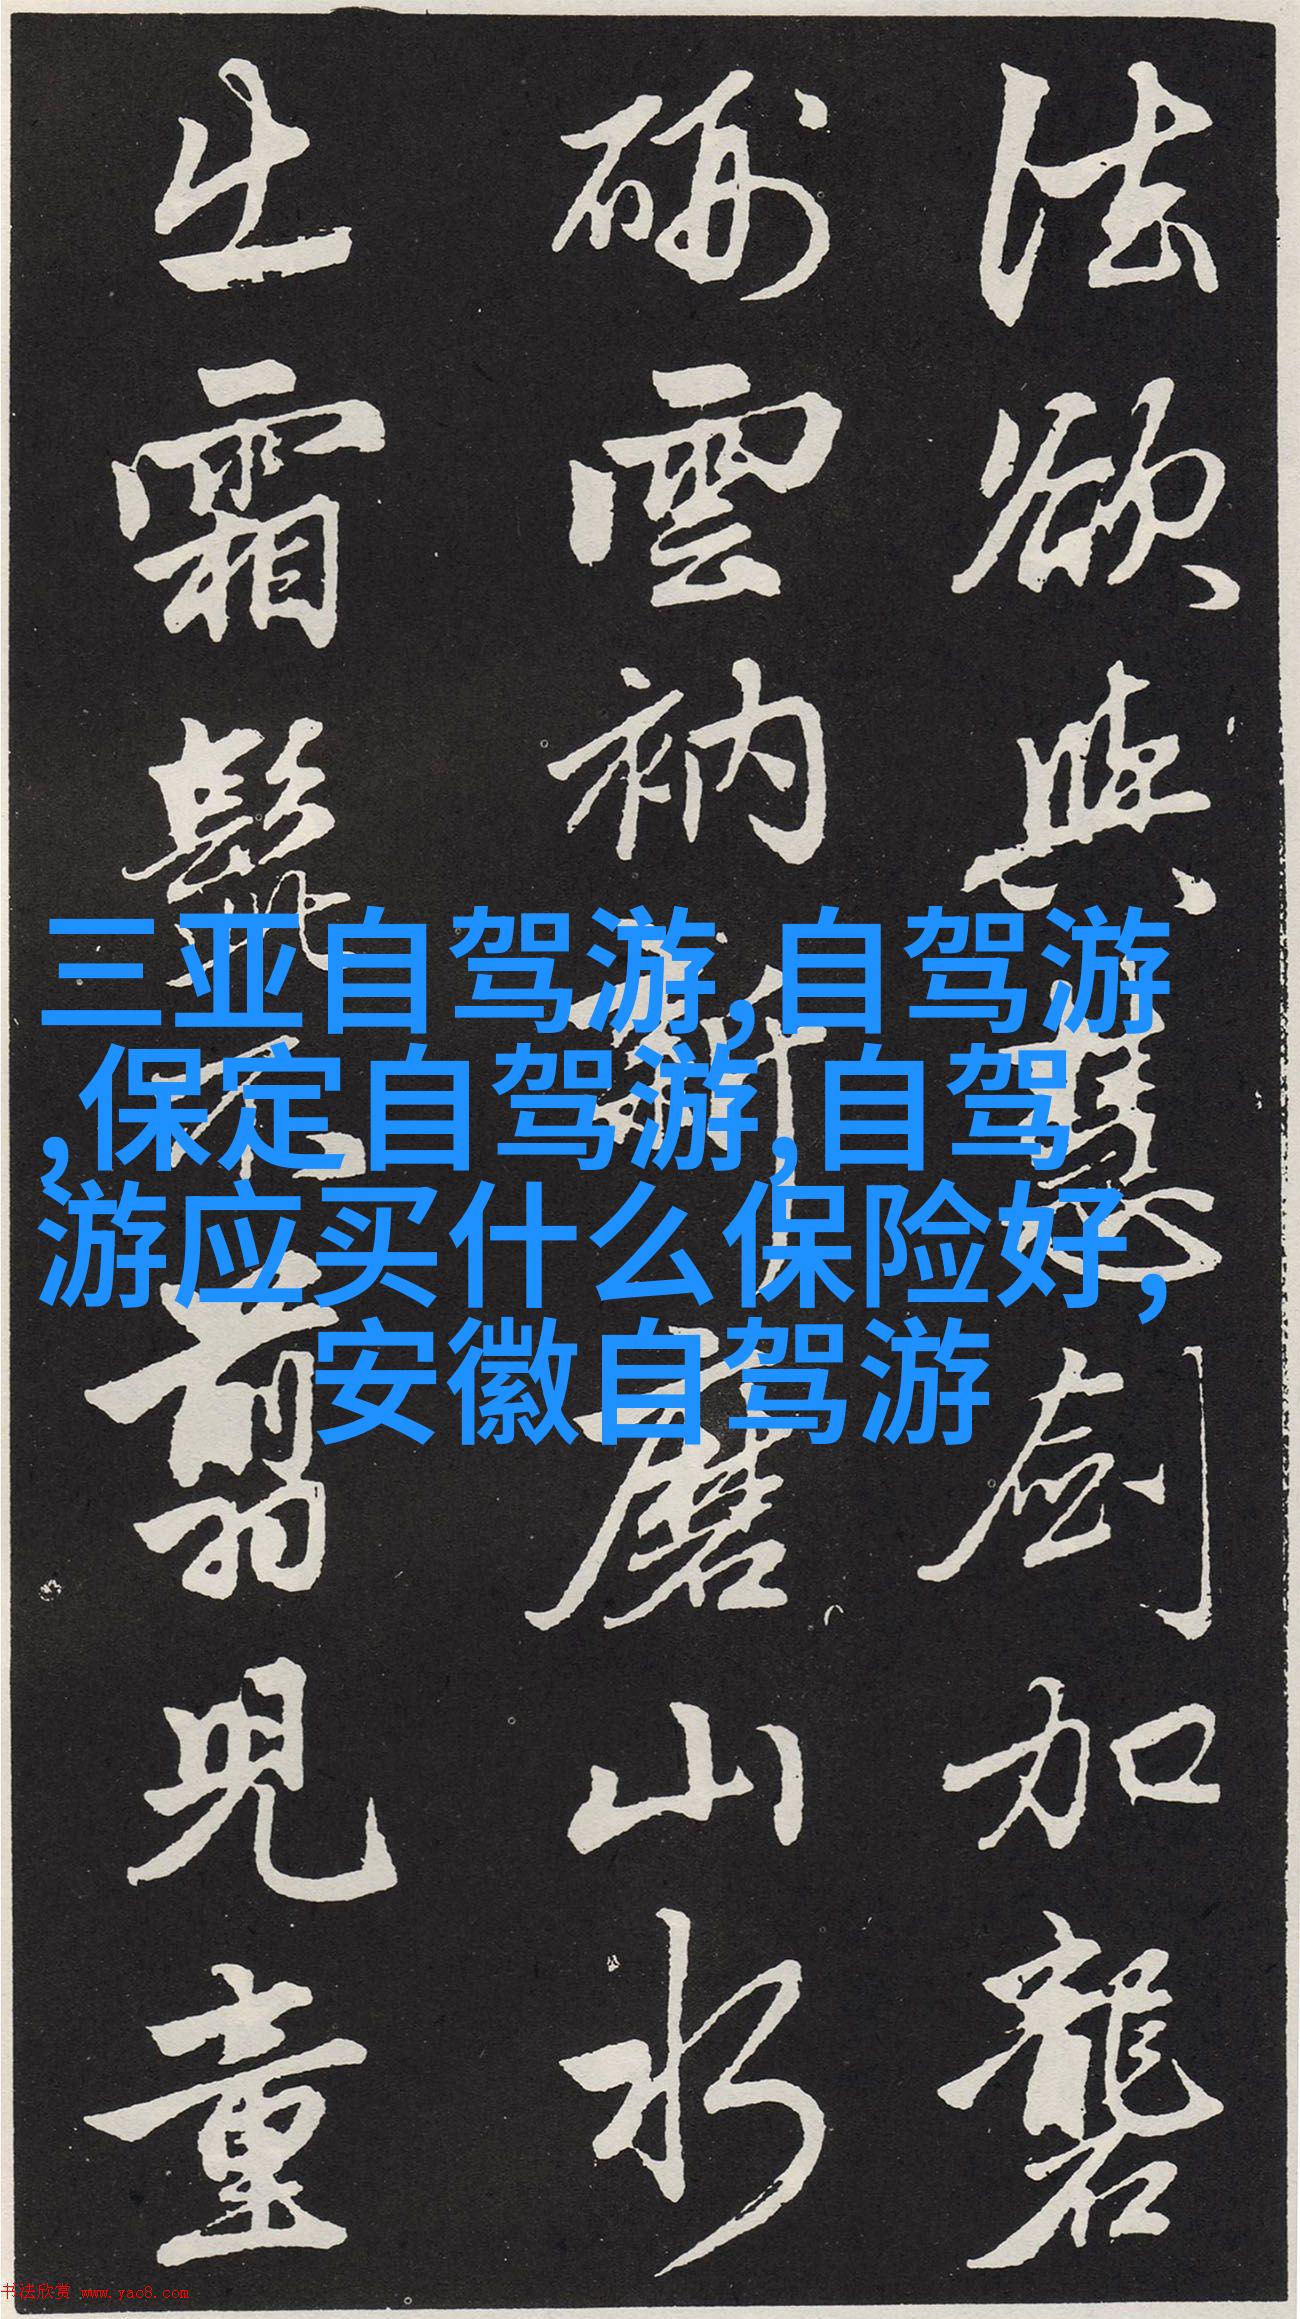 法欲與慧劍加礱
硎雲衲新磨山水
出霜髭不翦兒童
三亚自驾游,自驾游
,保定自驾游,自驾
游应买什么保险好,
安徽自驾游
书法欣赏 www.yac8.com